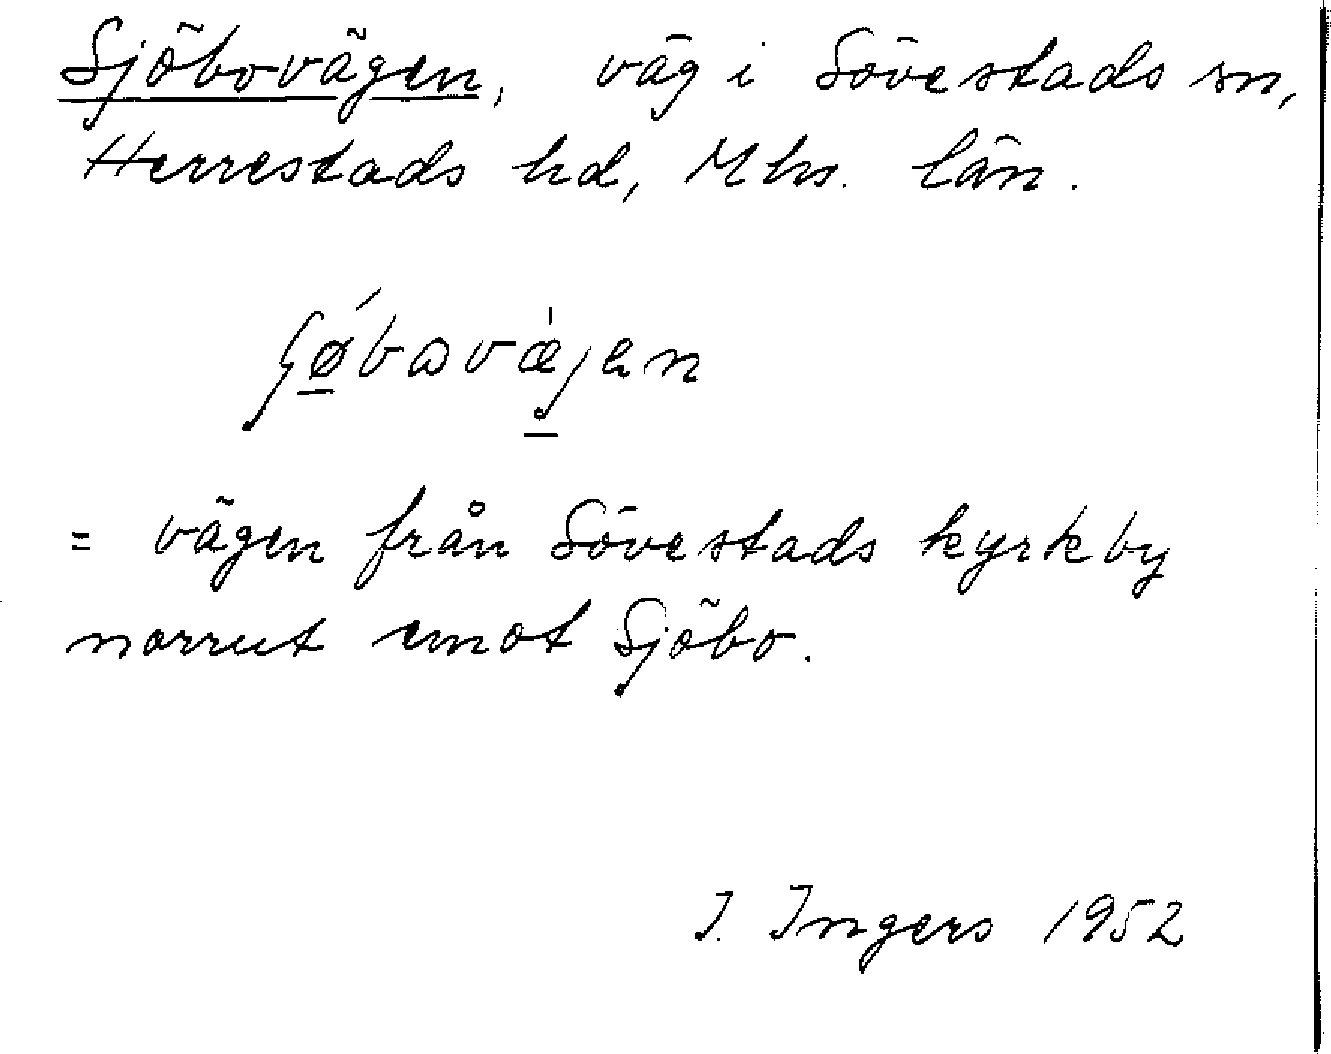 Sjöbovägen, väg i Sövestads sn,
Herrestads hd, Mhs. län.
= vägen från Sövestads kyrkby
norrut emot Sjöbo.
I. Ingers 1952